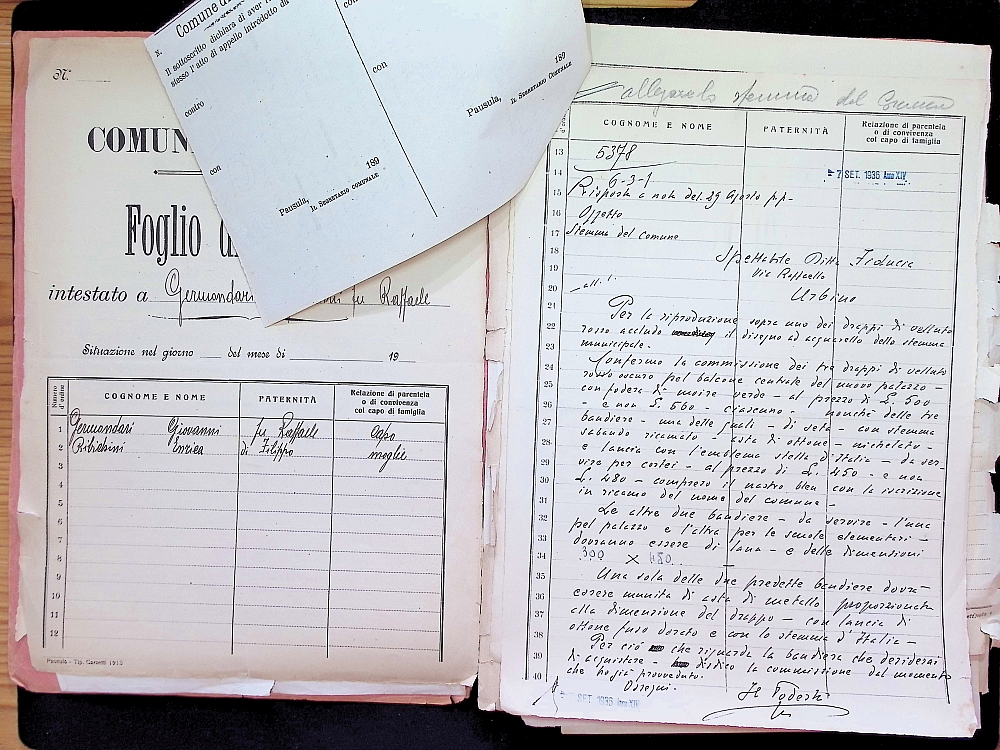 N.º
COMUN
Foglio d
intestato a Germondari fu Raffaele
Situazione nel giorno del mese di 19
Numero d'ordine
COGNOME E NOME
PATERNITÀ
Relazione di parentela o di convivenza col capo di famiglia
1 Germondari Giovanni fu Raffaele Capo
2 Ribichini Enrica di Filippo moglie
3
4
5
6
7
8
9
10
11
12
Pausula - Tip. Corsetti 1913
N. Comune d
Il sottoscritto dichiara di aver
stesso l'atto di appello introdotto da
contro
con
189
Pausula, IL SEGRETARIO COMUNALE
con
con
189
Pausula, IL SEGRETARIO COMUNALE
allegarelo stemma del Comune
COGNOME E NOME
PATERNITÀ
Relazione di parentela
o di convivenza
col capo di famiglia
13 5378
14 6-3-1 7 SET. 1936 Anno XIV
15 Risposta a nota del 29 Agosto p.p.
16 Oggetto
17 Stemma del Comune
18 Spettabile Ditta Fiducia
19 Via Raffaello
20 all. 1. Urbino
21 Per la riproduzione sopra uno dei drappi di velluto
22 rosso accludo il disegno ad acquarello dello stemma
23 municipale.
24 Confermo la commissione dei tre drappi di velluto
25 rosso oscuro pel balcone centrale del nuovo palazzo -
con fodera di moire verde - al prezzo di £. 500
26 - e non £. 560 - ciascuno - nonchè delle tre
27 bandiere - una delle quali - di seta - con stemma
sabaudo ricamato - asta di ottone - nichelato -
28 e lancia con l'emblema stella d'Italia - da ser-
29 vire per cortei - al prezzo di £. 450 - e non
30 £. 480 - compreso il nastro bleu con la iscrizione
31 in ricamo del nome del comune -
32 Le altre due bandiere - da servire - l'una
33 pel palazzo e l'altra per le scuole elementari -
dovranno essere di lana - e delle dimensioni
34 300 X 480
35 Una sola delle due predette bandiere dovrà
36 essere munita di asta di metallo proporzionata
37 alla dimensione del drappo - con lancia di
38 ottone fuso dorato e con lo stemma d'Italia -
Per ciò che riguarda la bandiera che desiderai
39 di acquistare - disdico la commissione dal momento
40 che ho già provveduto.
Ossequi. Il Podestà
7 SET. 1936 Anno XIV